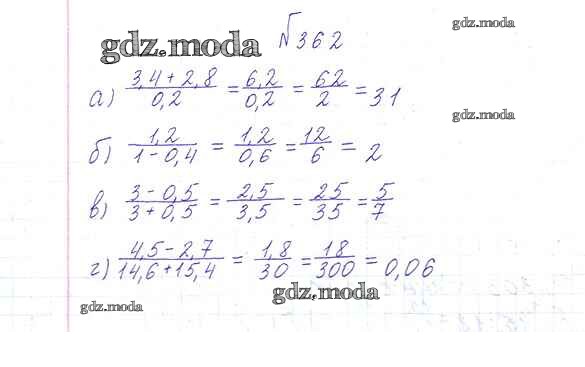 gdz.moda
№362
gdz.moda
а) (3,4 + 2,8)/0,2 = 6,2/0,2 = 62/2 = 31
gdz.moda
б) 1,2/(1 - 0,4) = 1,2/0,6 = 12/6 = 2
в) (3 - 0,5)/(3 + 0,5) = 2,5/3,5 = 25/35 = 5/7
г) (4,5 - 2,7)/(14,6 + 15,4) = 1,8/30 = 18/300 = 0,06
gdz.moda
gdz.moda